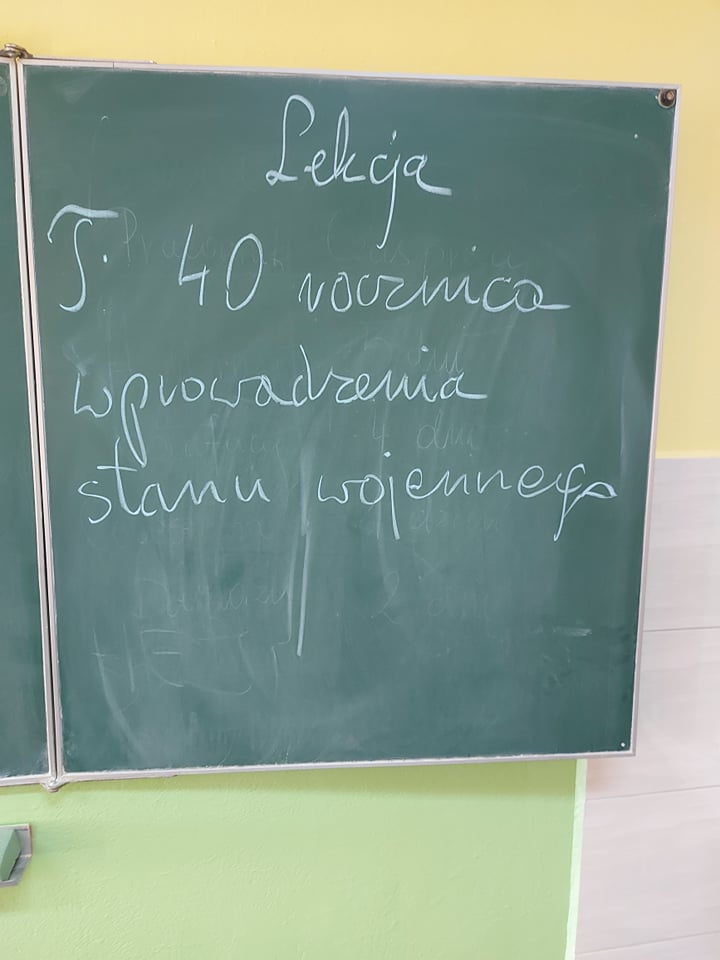 Lekcja
T. 40 rocznica
wprowadzenia
stanu wojennego